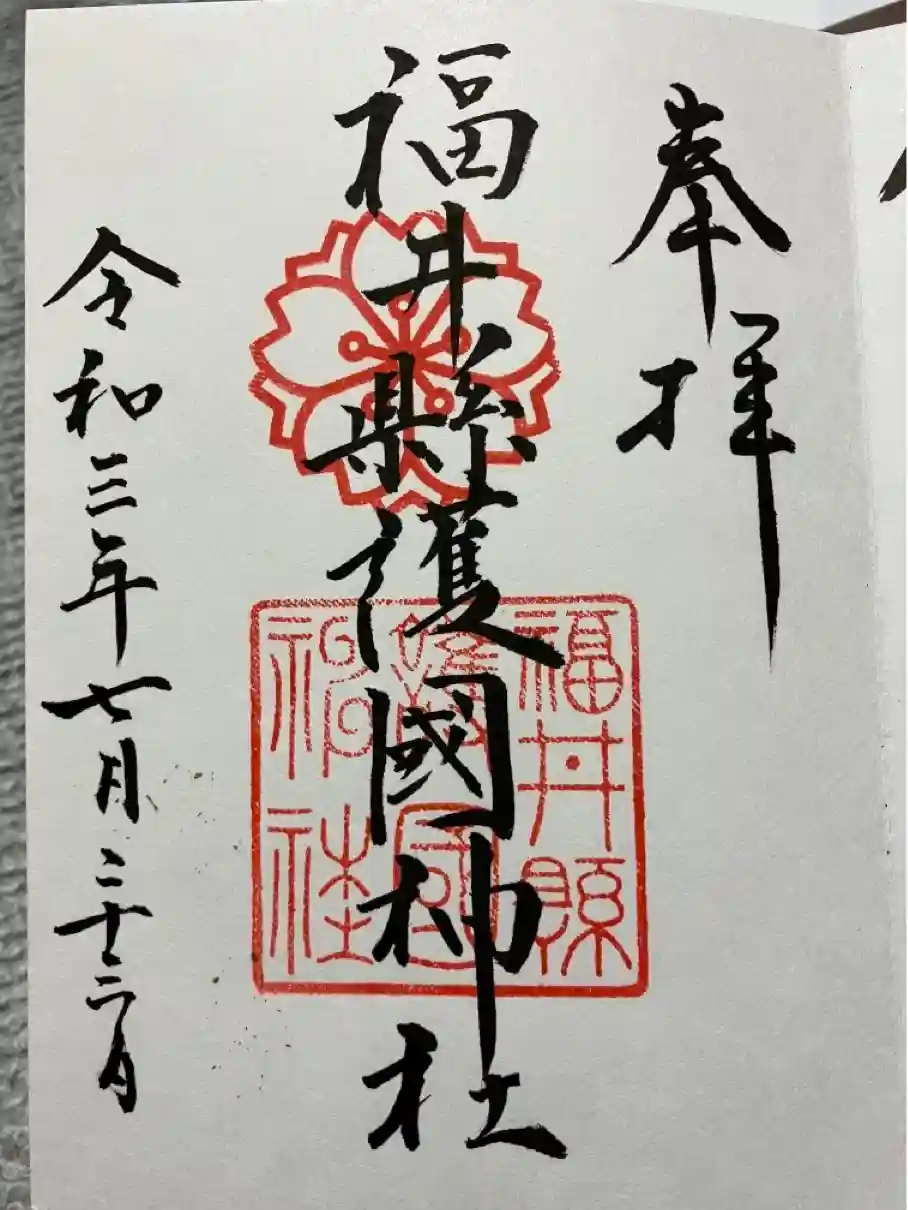 奉拝
福井縣護國神社
福井縣
護國
神社
令和三年七月二十三日